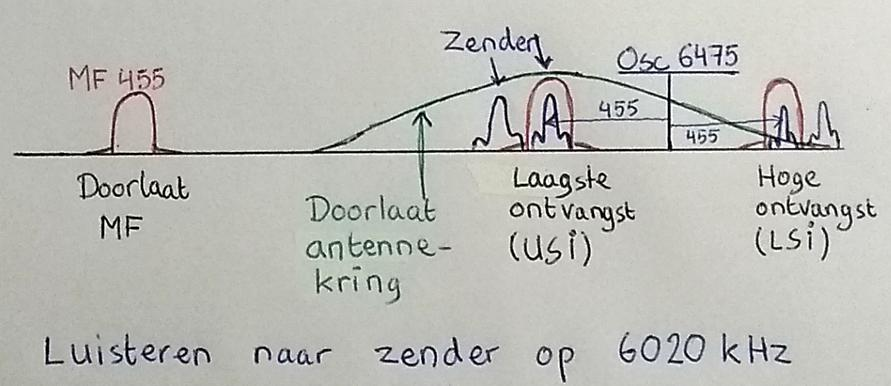 Zenders
Osc 6475
MF 455
455
455
Doorlaat
MF
Doorlaat
antenne-
kring
Laagste
ontvangst
(USi)
Hoge
ontvangst
(LSi)
Luisteren naar zender op 6020 kHz